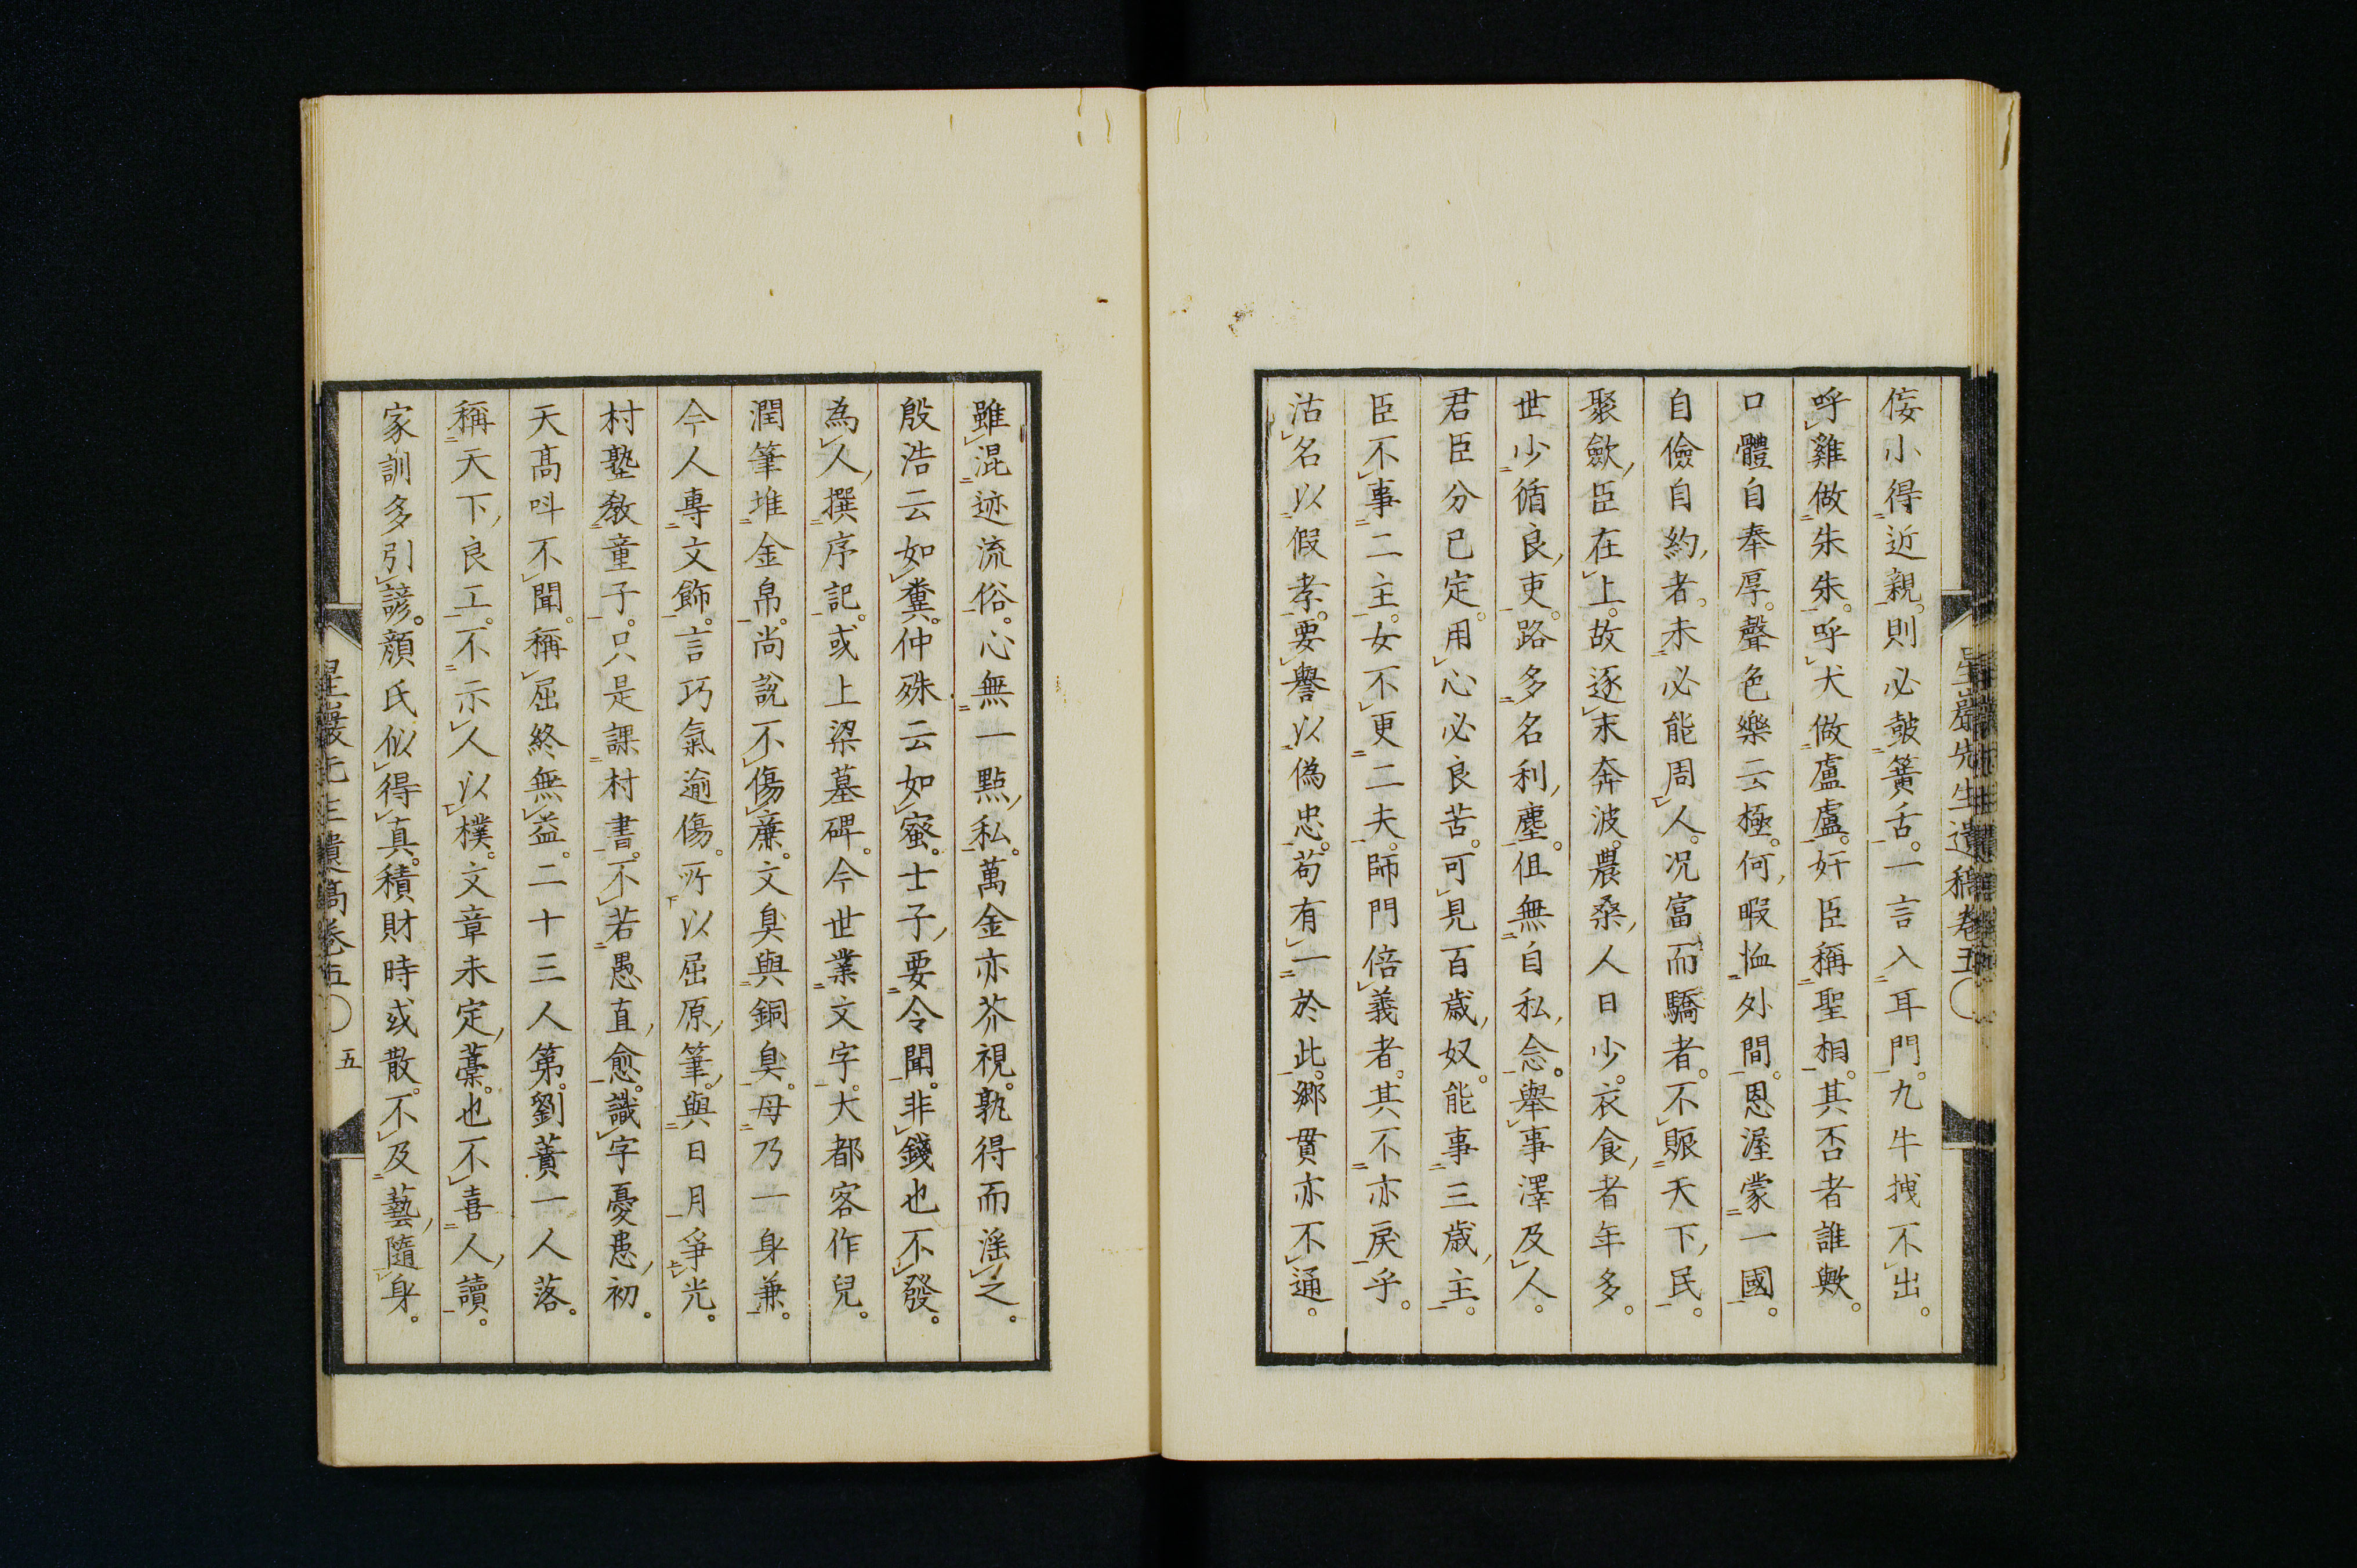 侫小得近親。則必皷簧舌。一言入耳門。九牛拽不出。
呼雞做朱朱。呼犬做盧盧。奸臣稱聖相。其否者誰歟。
口體自奉厚。聲色樂云極。何暇恤外間。恩渥蒙一國。
自儉自約者。未必能周人。况富而驕者。不賑天下民。
聚斂臣在上。故逐末奔波。農桑人日少。衣食者年多。
世少循良吏。路多名利塵。但無自私念。舉事澤及人。
君臣分已定。用心必良苦。可見百歲奴。能事三歲主。
臣不事二主。女不更二夫。師門倍義者。其不亦戾乎。
沽名以假孝。要譽以偽忠。苟有一於此。鄉貫亦不通。
雖混迹流俗。心無一點私。萬金亦芥視。孰得而滛之。
殷浩云如糞。仲殊云如蜜。士子要令聞。非錢也不發。
為人撰序記。或上梁墓碑。今世業文字。大都客作兒。
潤筆堆金帛。尚說不傷廉。文臭與銅臭。毋乃一身兼。
今人專文飾。言巧氣逾傷。所以屈原筆。與日月爭光。
村塾教童子。只是課村書。不若愚直愈。識字憂患初。
天高呌不聞。稱屈終無益。二十三人第。劉蕡一人落。
稱天下良工。不示人以樸。文章未定藁。也不喜人讀。
家訓多引諺。顏氏似得真。積財時或散。不及藝隨身。
星巖先生遺稿卷五
五